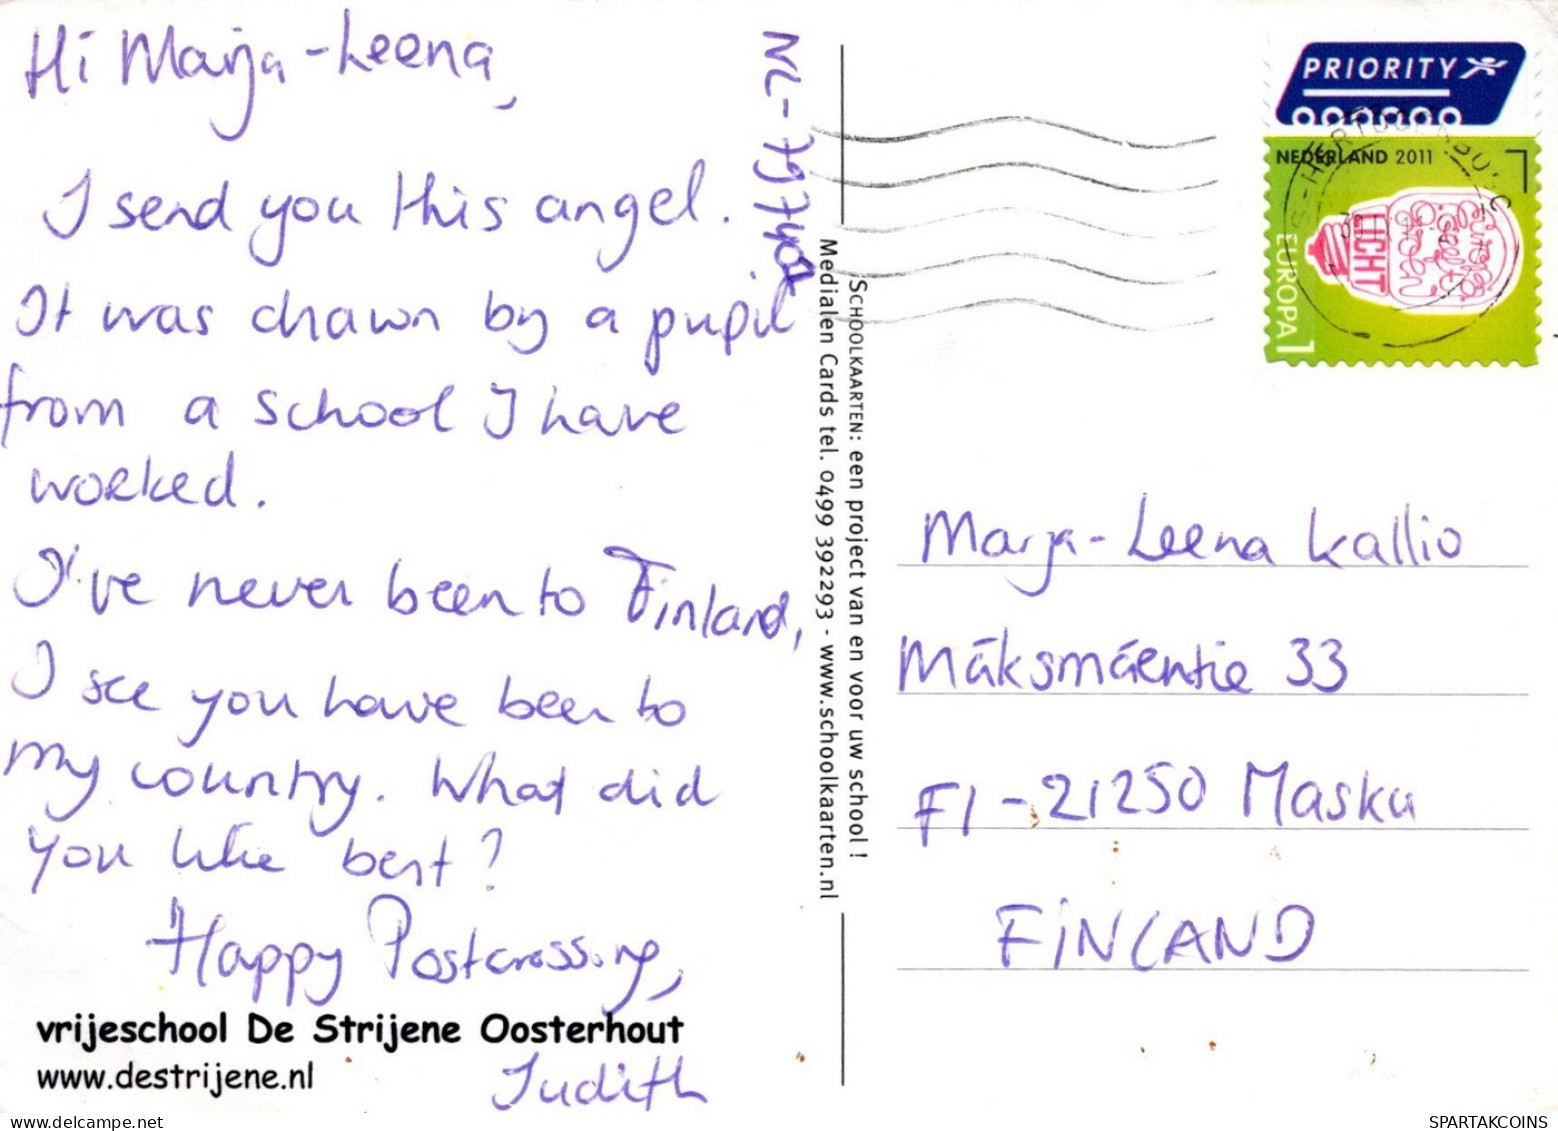 Hi Marja-Leena,
I send you this angel.
It was drawn by a pupil
from a school I have
worked.
I've never been to Finland,
I see you have been to
my country. What did
you like best?
Happy Postcrossing,
vrijeschool De Strijene Oosterhout
www.destrijene.nl
Judith
SCHOOLKAARTEN: een project van en voor uw school!
Medialen Cards tel. 0499 392293 - www.schoolkaarten.nl
PRIORITY
NEDERLAND 2011
LICHT
EUROPA 1
Marja-Leena Kallio
Mäksmäentie 33
FI-21250 Masku
FINLAND
SPARTAKCOINS